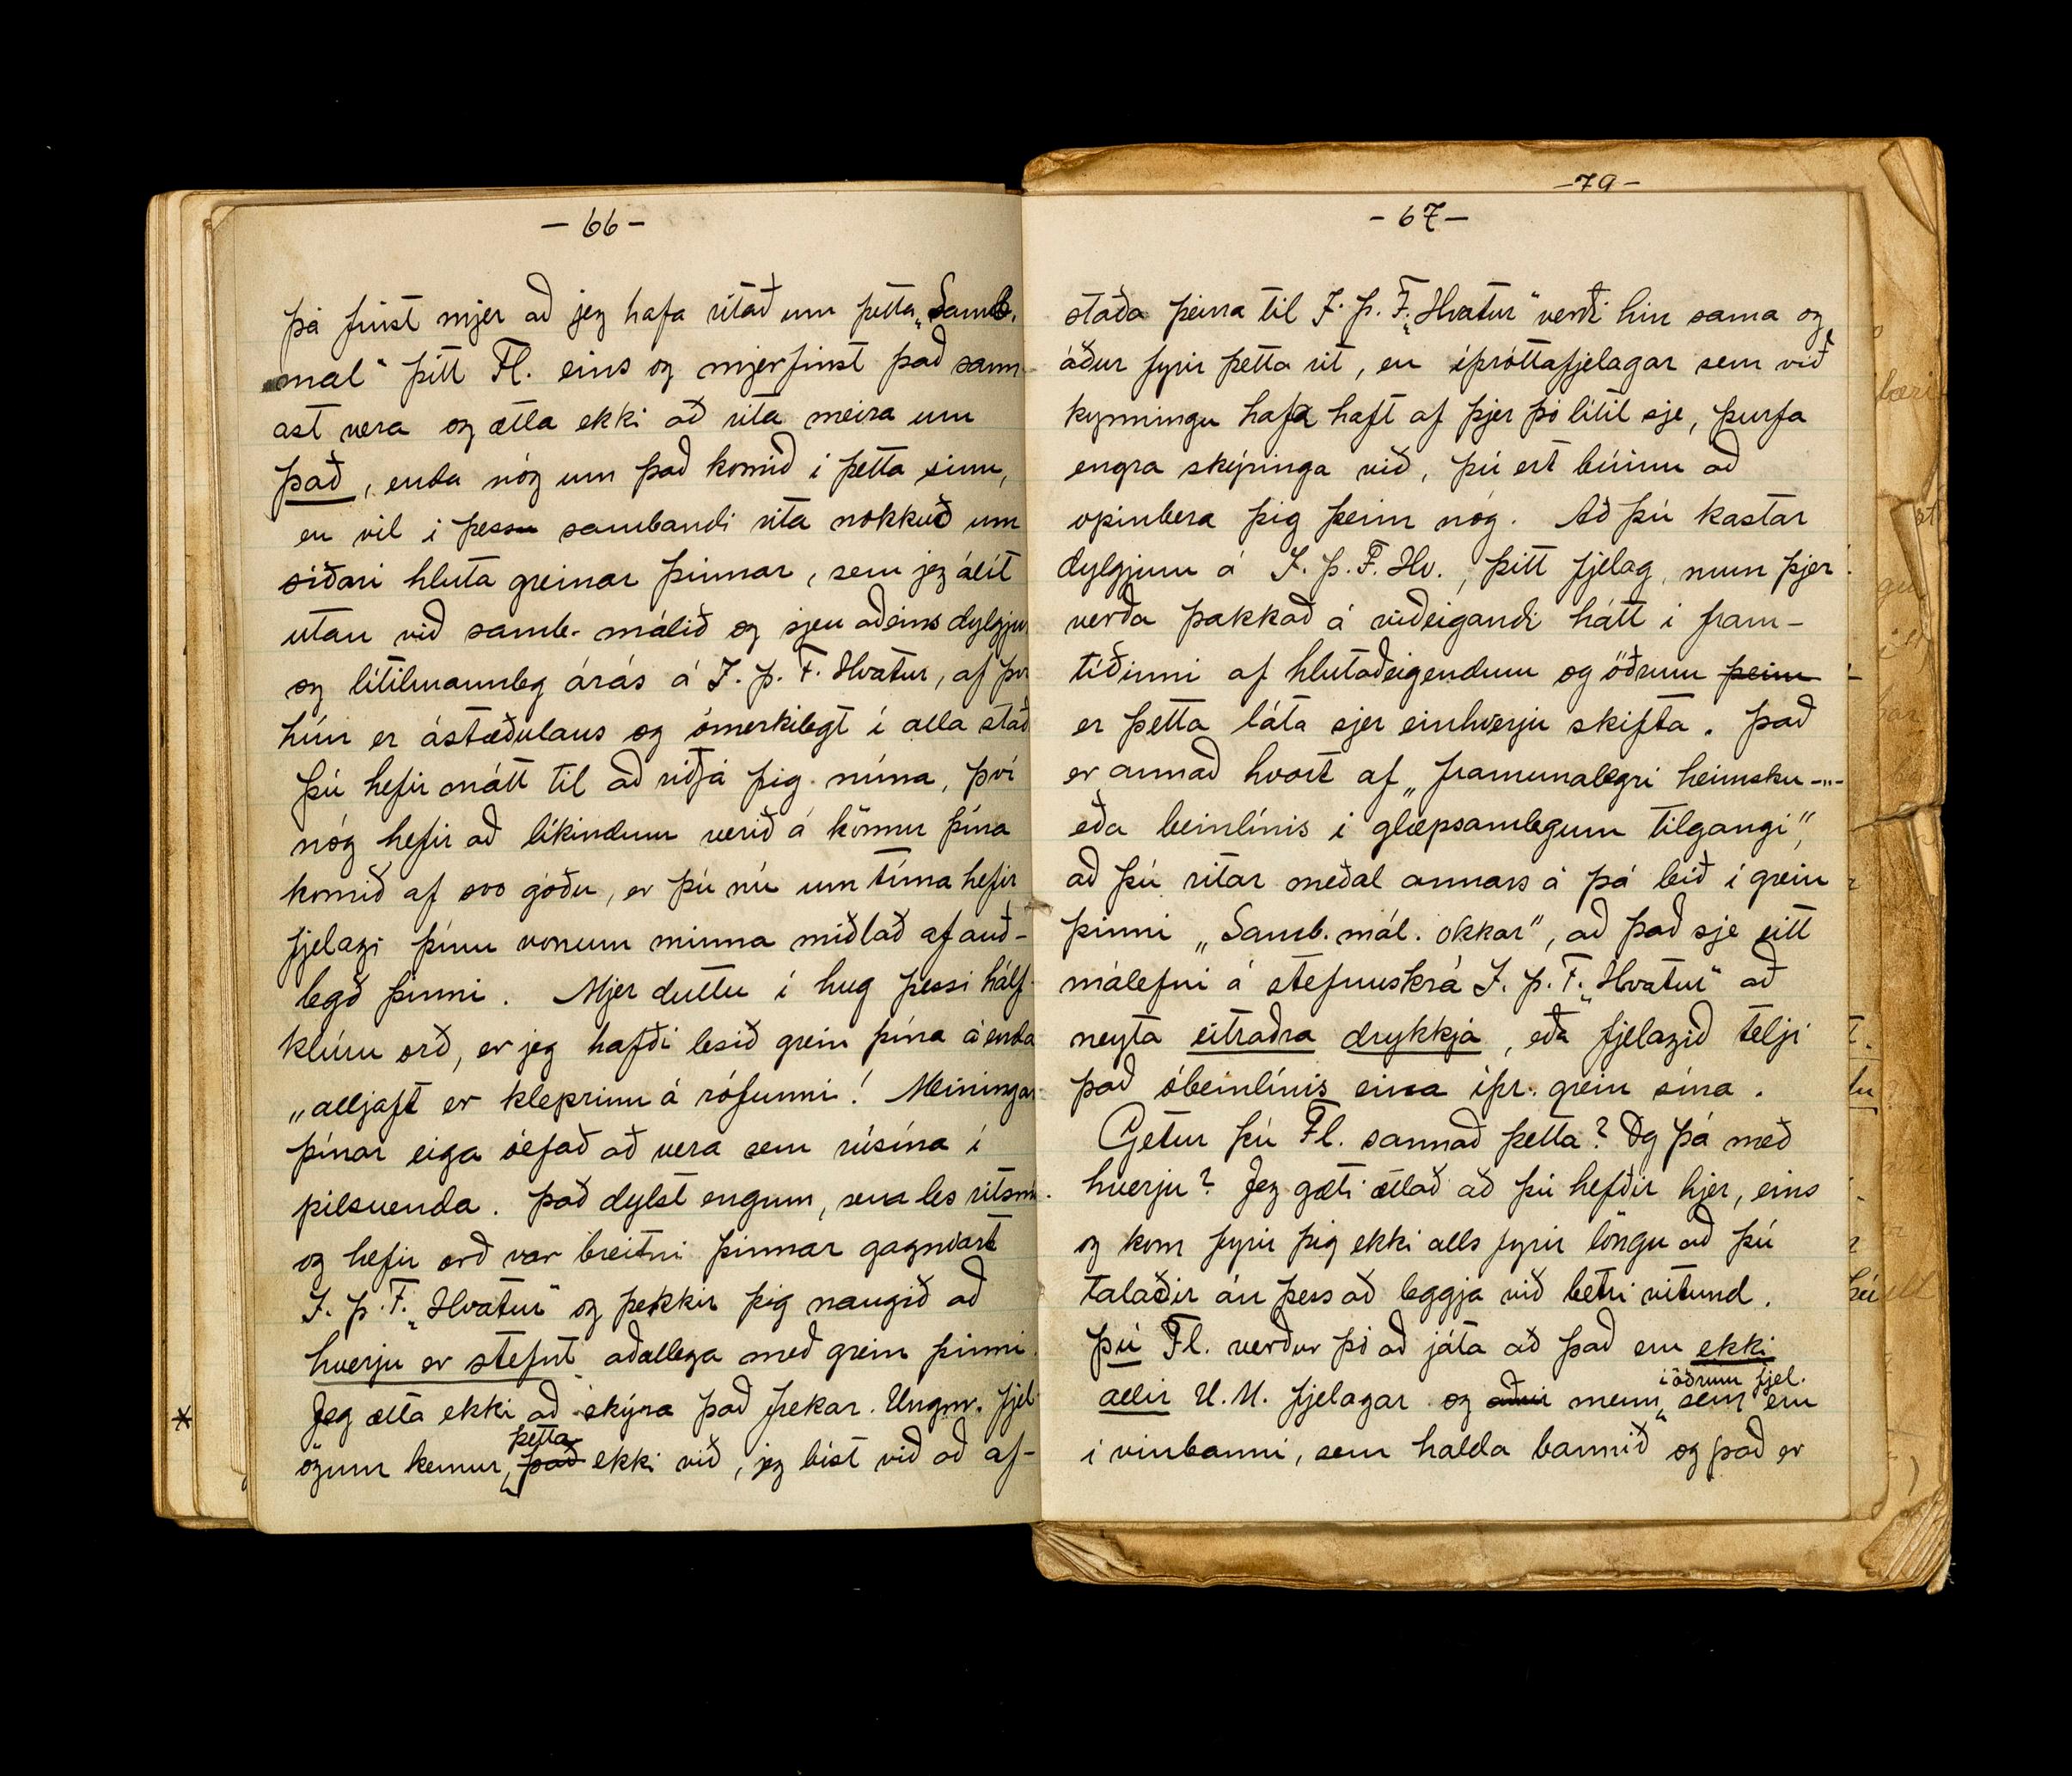 - 66 -
þá finst mjer að jeg hafa ritað um þetta „Samb.
mál“ þitt Fl. eins og mjer finst það sann-
ast vera og ætla ekki að rita meira um
það, enda nóg um það komið í þetta sinn,
en vil í þessu sambandi rita nokkuð um
síðari hluta greinar þinnar, sem jeg álít
utan við samb. málið og sjeu aðeins dylgjur
og lítilmannleg árás á I. þ. F. Hvatur, af því
hún er ástæðulaus og ómerkilegt í alla stað
Þú hefir mátt til að riðja þig núna, því
nóg hefir að líkindum verið á könnu þína
komið af svo góðu, er þú nú um tíma hefir
fjelagi þínu vonum minna miðlað af auð-
legð þinni. Mjer duttu í hug þessi hálf-
klúru orð, er jeg hafði lesið grein þína á enda
„alljaft er kleprinn á rófunni! Meiningar
þínar eiga óefað að vera sem rúsína í
pilsuenda. Það dylst engum, sem les ritsm.
og hefir orð var breitni þinnar gagnvart
I. þ. F. „Hvatur“ og þekkir þig naugið að
hverju er stefnt aðallega með grein þinni.
Jeg ætla ekki að skýra það frekar. Ungm. fjel-
ögum kemur þetta það ekki við, jeg bíst við að af-
*
- 79 -
- 67 -
staða þeirra til I. þ. F. „Hvatur“ verði hin sama og
áður fyrir þetta rit, en íþróttafjelagar sem við
kynningu hafa haft af þjer þó lítil sje, þurfa
engra skýringa við, þú ert búinn að
opinbera þig þeim nóg. Að þú kastar
dylgjum á I. þ. F. Hv., þitt fjelag, mun þjer
verða þakkað á viðeigandi hátt í fram-
tíðinni af hlutaðeigendum og öðrum þeim
er þetta láta sjer einhverju skifta. Það
er annað hvort af „framunalegri heimsku -"-
eða beinlínis í glæpsamlegum tilgangi“,
að þú ritar meðal annars á þá leið í grein
þinni „Samb. mál. okkar“, að það sje eitt
málefni á stefnuskrá I. þ. F. „Hvatur“ að
neyta eitraðra drykkja, eða fjelagið telji
það óbeinlínis eina íþr. grein sína.
Getur þú Fl. sannað þetta? Og þá með
hverju? Jeg gæti ætlað að þú hefðir hjer, eins
og kom fyrir þig ekki alls fyrir löngu að þú
talaðir án þess að leggja við betri vitund.
Þú Fl. verður þó að játa að það eru ekki
allir U.M. fjelagar og aðrir menn í öðrum fjel. sem eru
í vinbanni, sem halda bannið og það er